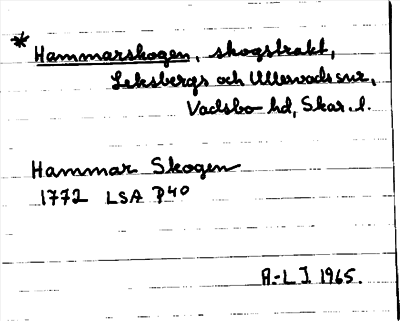 * Hammarskogen, skogstrakt,
Leksbergs och Ullervads snr,
Vadsbo hd, Skar. l.
Hammar Skogen
1772 LSA P40
A.-L J. 1965.